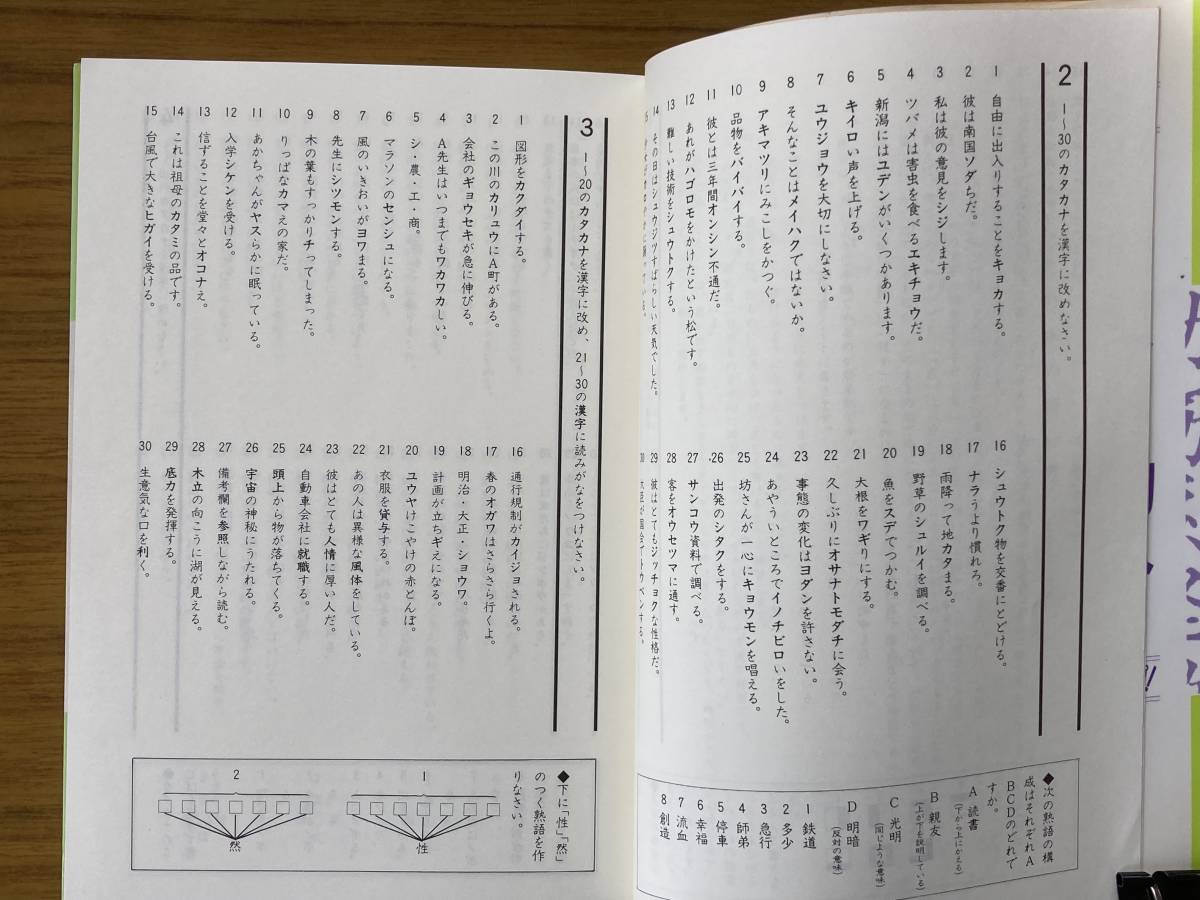 2 1~30のカタカナを漢字に改めなさい。
1 自由に出入りすることをキョカする。
2 彼は南国ソダちだ。
3 私は彼の意見をシジします。
4 ツバメは害虫を食べるエキチョウだ。
5 新潟にはユデンがいくつかあります。
6 キイロい声を上げる。
7 ユウジョウを大切にしなさい。
8 そんなことはメイハクではないか。
9 アキマツリにみこしをかつぐ。
10 品物をバイバイする。
11 彼とは三年間オンシン不通だ。
12 あれがハゴロモをかけたという松です。
13 難しい技術をシュウトクする。
14 その日はシュウジツすばらしい天気でした。
16 シュウトク物を交番にとどける。
17 ナラうより慣れろ。
18 雨降って地カタまる。
19 野草のシュルイを調べる。
20 魚をスデでつかむ。
21 大根をワギりにする。
22 久しぶりにオサナトモダチに会う。
23 事態の変化はヨダンを許さない。
24 あやういところでイノチビロいをした。
25 坊さんが一心にキョウモンを唱える。
26 出発のシタクをする。
27 サンコウ資料で調べる。
28 客をオウセツマに通す。
29 彼はとてもジッチョクな性格だ。
30 大臣が国会でトウベンする。
◆次の熟語の構
成はそれぞれA
BCDのどれで
すか。
A 読書
(下から上にかえる)
B 親友
(上が下を説明している)
C 光明
(同じような意味)
D 明暗
(反対の意味)
1 鉄道
2 多少
3 急行
4 師弟
5 停車
6 幸福
7 流血
8 創造
3 1~20のカタカナを漢字に改め、21~30の漢字に読みがなをつけなさい。
1 図形をカクダイする。
2 この川のカリュウにA町がある。
3 会社のギョウセキが急に伸びる。
4 A先生はいつまでもワカワカしい。
5 シ・農・工・商。
6 マラソンのセンシュになる。
7 風のいきおいがヨワまる。
8 先生にシツモンする。
9 木の葉もすっかりチってしまった。
10 りっぱなカマえの家だ。
11 あかちゃんがヤスらかに眠っている。
12 入学シケンを受ける。
13 信ずることを堂々とオコナえ。
14 これは祖母のカタミの品です。
15 台風で大きなヒガイを受ける。
16 通行規制がカイジョされる。
17 春のオガワはさらさら行くよ。
18 明治・大正・ショウワ。
19 計画が立ちギえになる。
20 ユウヤけこやけの赤とんぼ。
21 衣服を貸与する。
22 あの人は異様な風体をしている。
23 彼はとても人情に厚い人だ。
24 自動車会社に就職する。
25 頭上から物が落ちてくる。
26 宇宙の神秘にうたれる。
27 備考欄を参照しながら読む。
28 木立の向こうに湖が見える。
29 底力を発揮する。
30 生意気な口を利く。
◆下に「性」「然」
のつく熟語を作
りなさい。
1
性
2
然